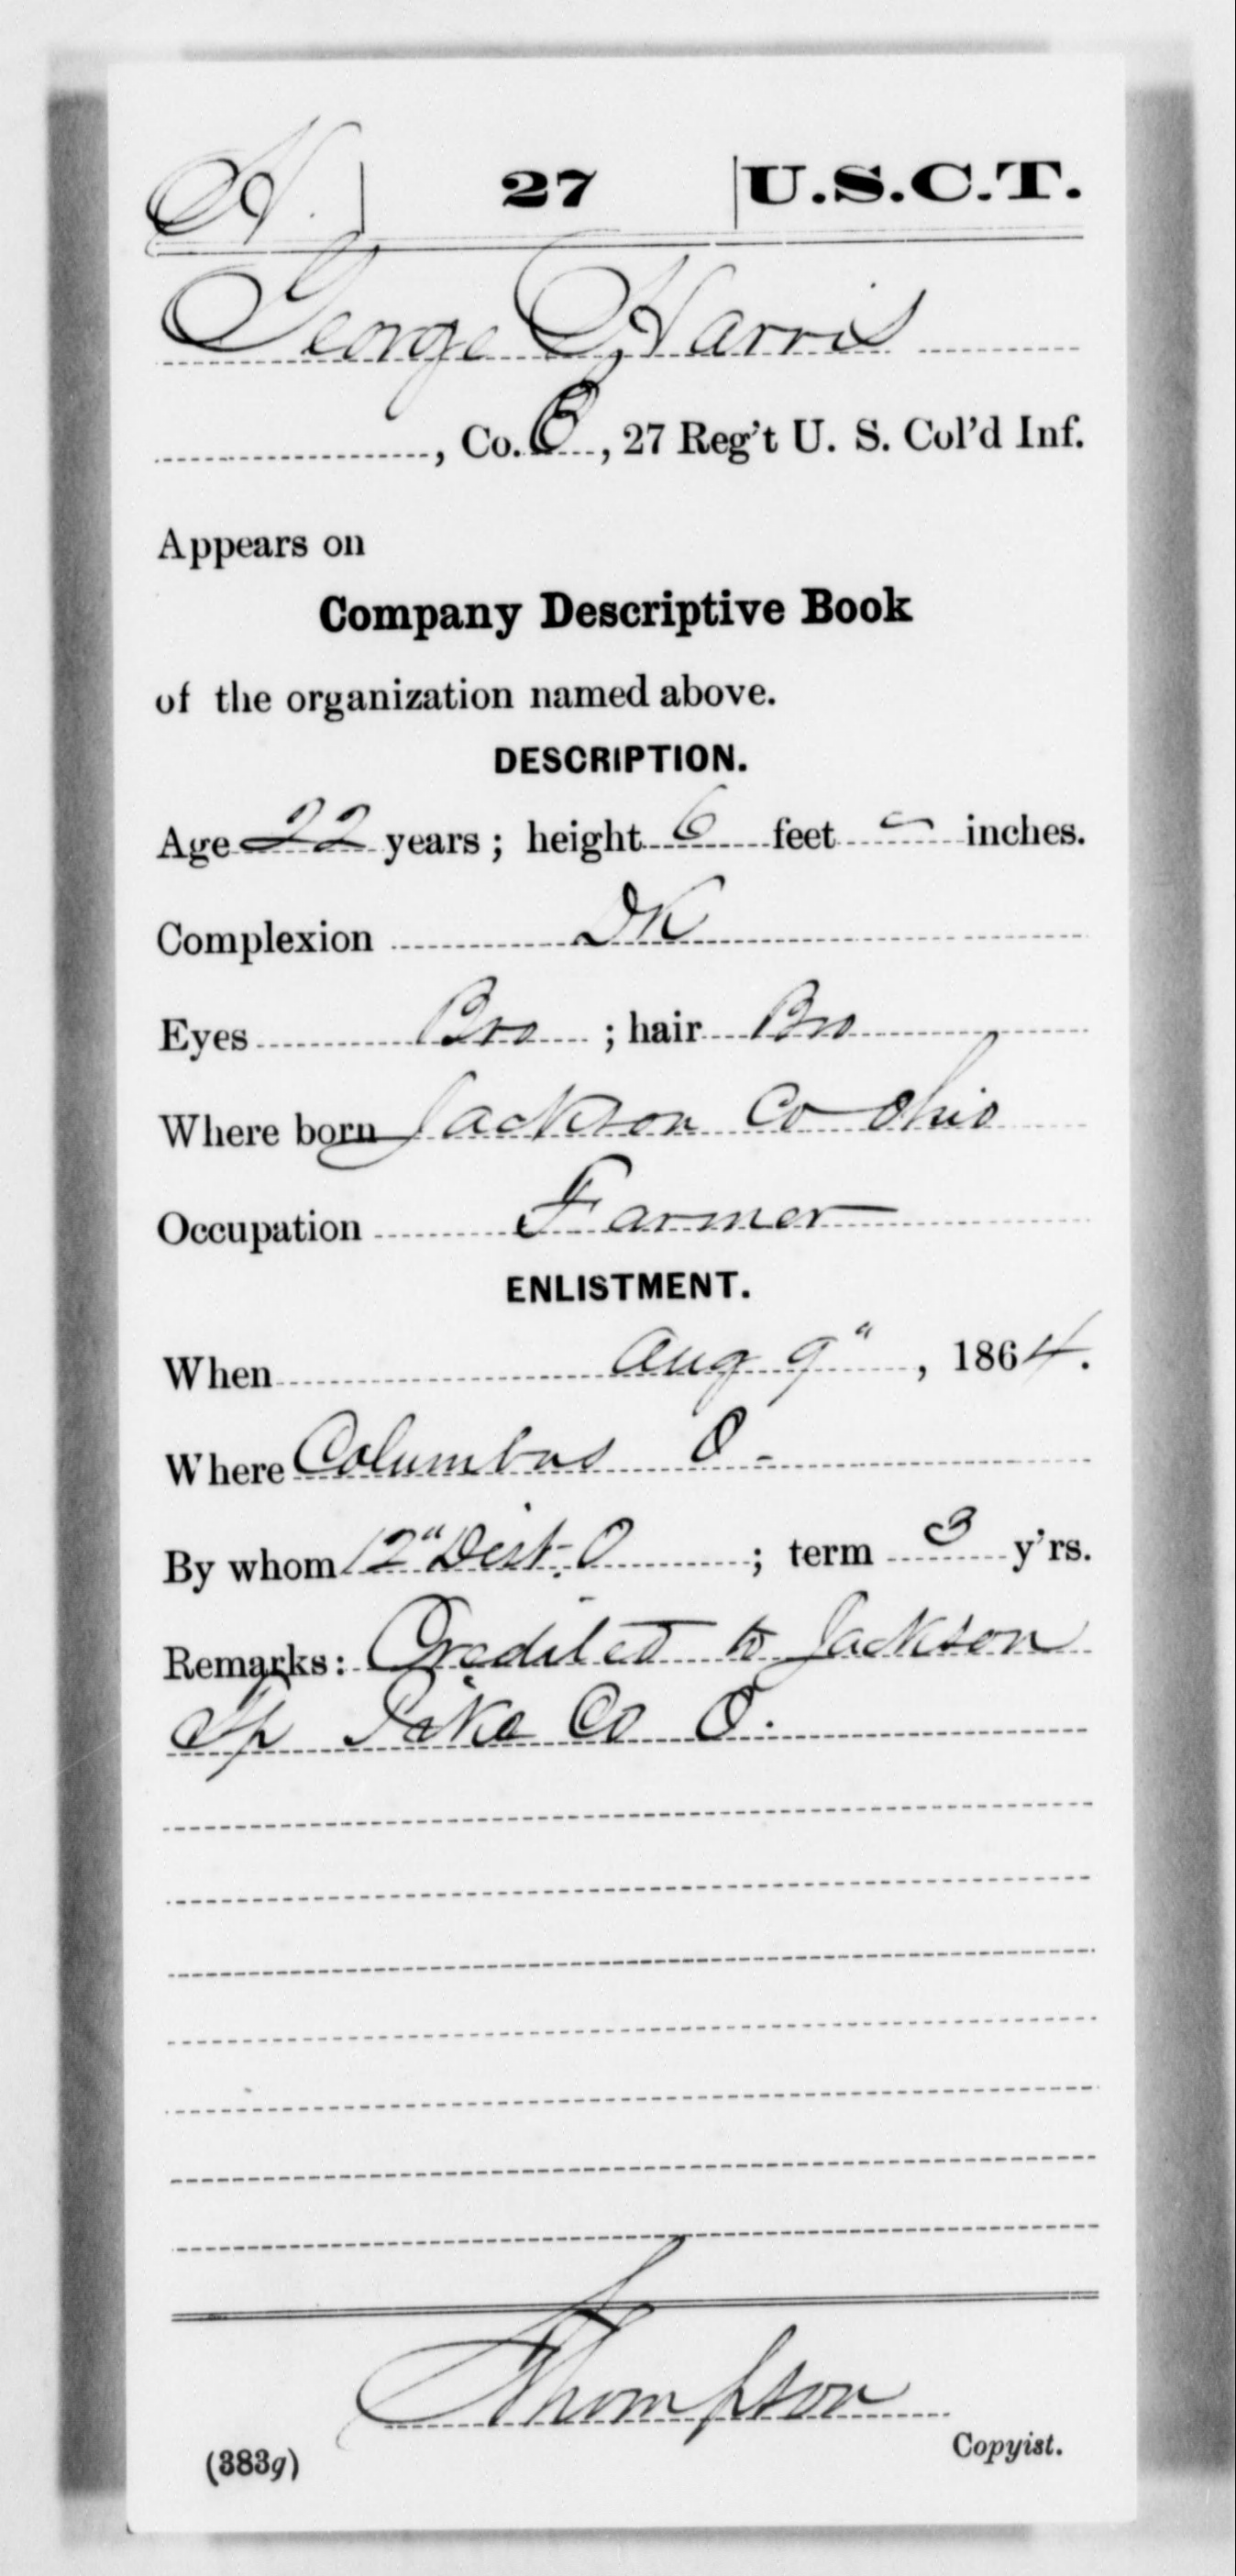 H. | 27 | U.S.C.T.
George Harris
, Co. B, 27 Reg't U. S. Col'd Inf.
Appears on
Company Descriptive Book
of the organization named above.
DESCRIPTION.
Age 22 years; height 6 feet - inches.
Complexion Dk
Eyes Bro; hair Bro
Where born Jackson Co Ohio
Occupation Farmer
ENLISTMENT.
When Aug 9", 1864.
Where Columbus O-
By whom 12" Dist. O; term 3 y'rs.
Remarks: Credited to Jackson
Tp Pike Co O.
Thompson
(383g) Copyist.